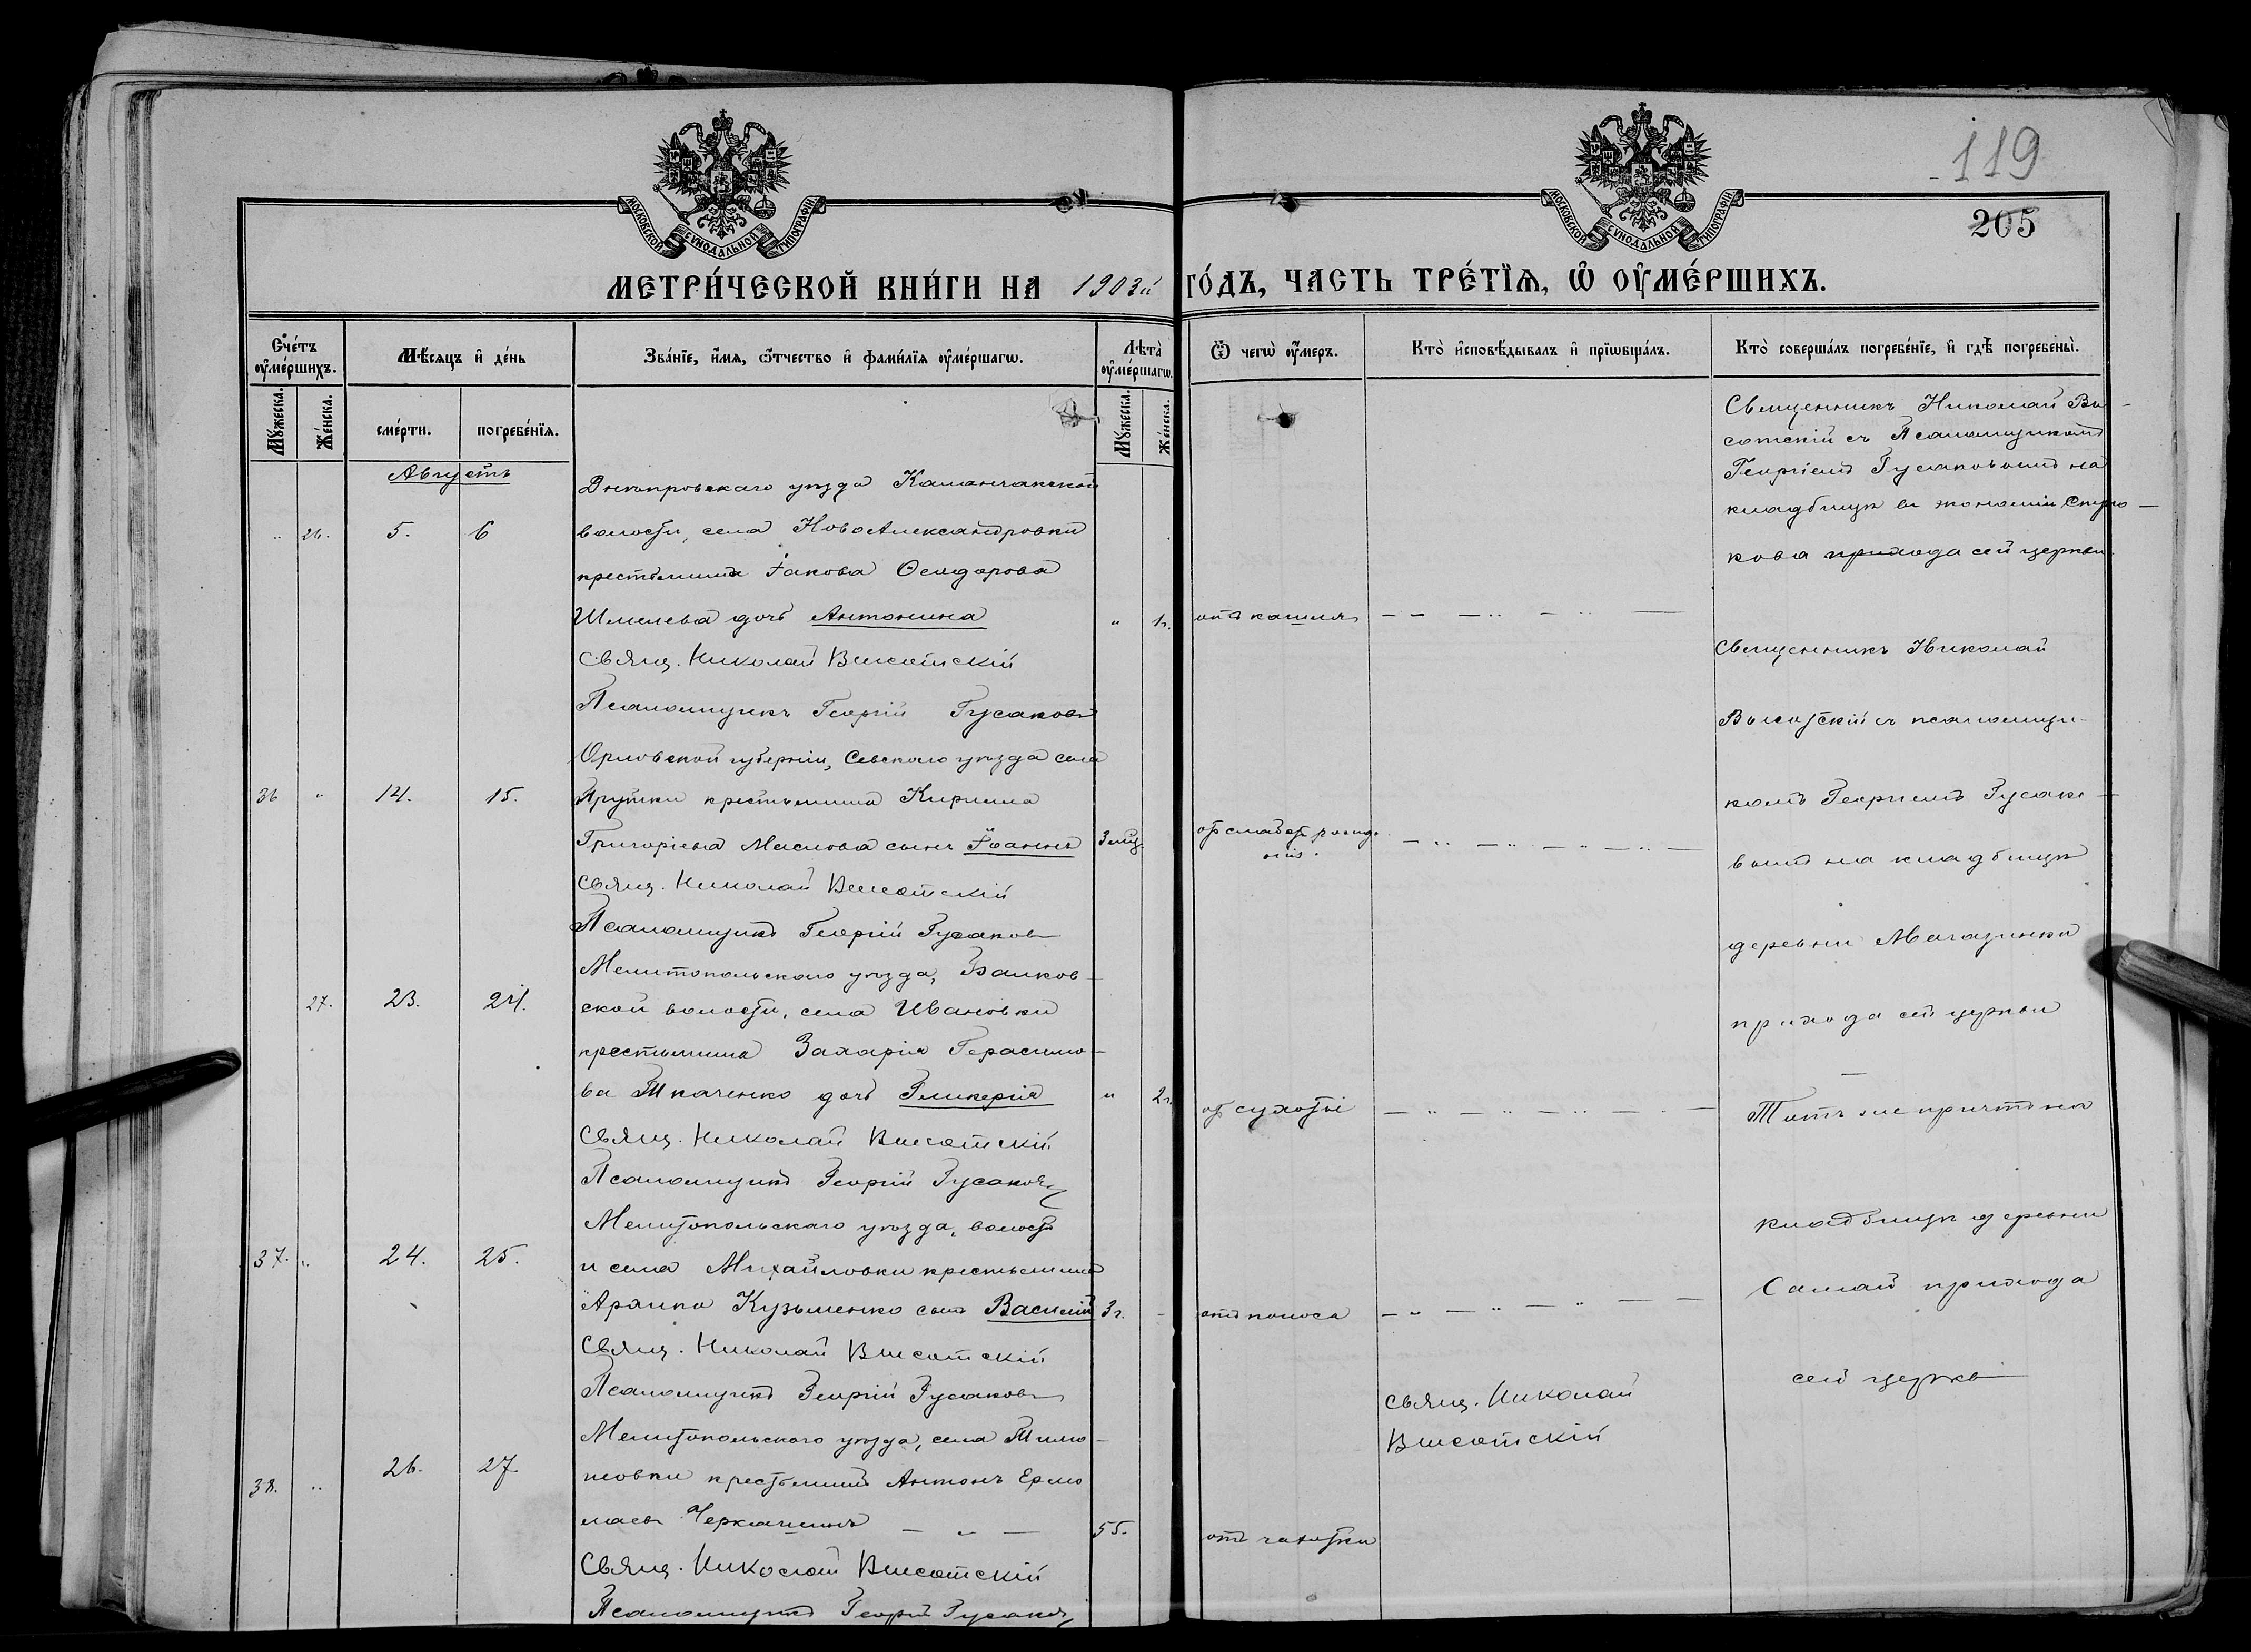 119
205
МОСКОВСКОЙ СѴНОДАЛЬНОЙ ТИПОГРАФІИ
МОСКОВСКОЙ СѴНОДАЛЬНОЙ ТИПОГРАФІИ
МЕТРИ́ЧЕСКОЙ КНИ́ГИ НА 1903й ГО́ДЪ, ЧАСТЬ ТРЕ́ТІѦ, Ѡ҆ ОУ҆МЕ́РШИХЪ.
Сче́тъ оу҆ме́ршихъ.
Мѣ́сяцъ и҆ де́нь
Зва́нїе, и҆́мя, ѻ҆́тчество и҆ фами́лїя оу҆ме́ршагѡ.
Лѣта̀ оу҆ме́ршагѡ.
Ѿ чегѡ̀ оу҆́меръ.
Кто̀ и҆сповѣ́дывалъ и҆ прїѡбща́лъ.
Кто̀ соверша́лъ погребе́нїе, и҆ гдѣ̀ погребены̀.
Мꙋ́жеска.
Же́нска.
сме́рти.
погребе́нїя.
Мꙋ́жеска.
Же́нска.
Августъ
Днѣпровскаго уѣзда Каланчакской
" 26. 5. 6 волости, села НовоАлександровки
крестьянина Іакова Ѳеодорова
Шмелева дочь Антонина " 1г. отъ кашля
Свящ. Николай Высотскій
Псаломщикъ Георгій Гусаковъ
Священникъ Николай Вы-
сотскій съ Псаломщикомъ
Георгіемъ Гусаковымъ на
кладбищѣ въ экономіи
кова прихода сей церкви.
Орловской губерніи, Севскаго уѣзда села
36 " 14. 15. крестьянина Кирилла
Григоріева Маслова сынъ Іоаннъ 3 мѣц. отъ слабаго рожде
нія.
Свящ. Николай Высотскій
Псаломщикъ Георгій Гусаковъ
Священникъ Николай
Высотскій съ псаломщи-
комъ Георгіемъ Гусако-
вымъ на кладбищѣ
деревни Магазинки
прихода сей церкви
Мелитопольскаго уѣзда,
27. 23. 24. ской волости, села Ивановки
крестьянина Захарія Герасимо-
ва Ткаченко дочь Гликерія " 2г. отъ сухоты
Свящ. Николай Высотскій
Псаломщикъ Георгій Гусаковъ
Тотъ же причтъ на
кладбищѣ деревни
прихода
сей церкви
Мелитопольскаго уѣзда, волости
37. " 24. 25. и села Михайловки крестьянина
Кузьменко сынъ Василій 3г. отъ поноса
Свящ. Николай Высотскій
Псаломщикъ Георгій Гусаковъ
Мелитопольскаго уѣзда, села Тимо-
38. " 26. 27 шовки крестьянинъ Антонъ Ермо
лаевъ 55. отъ чахотки
Свящ. Николай
Высотскій
Свящ. Николай Высотскій
Псаломщикъ Георгій Гусаковъ